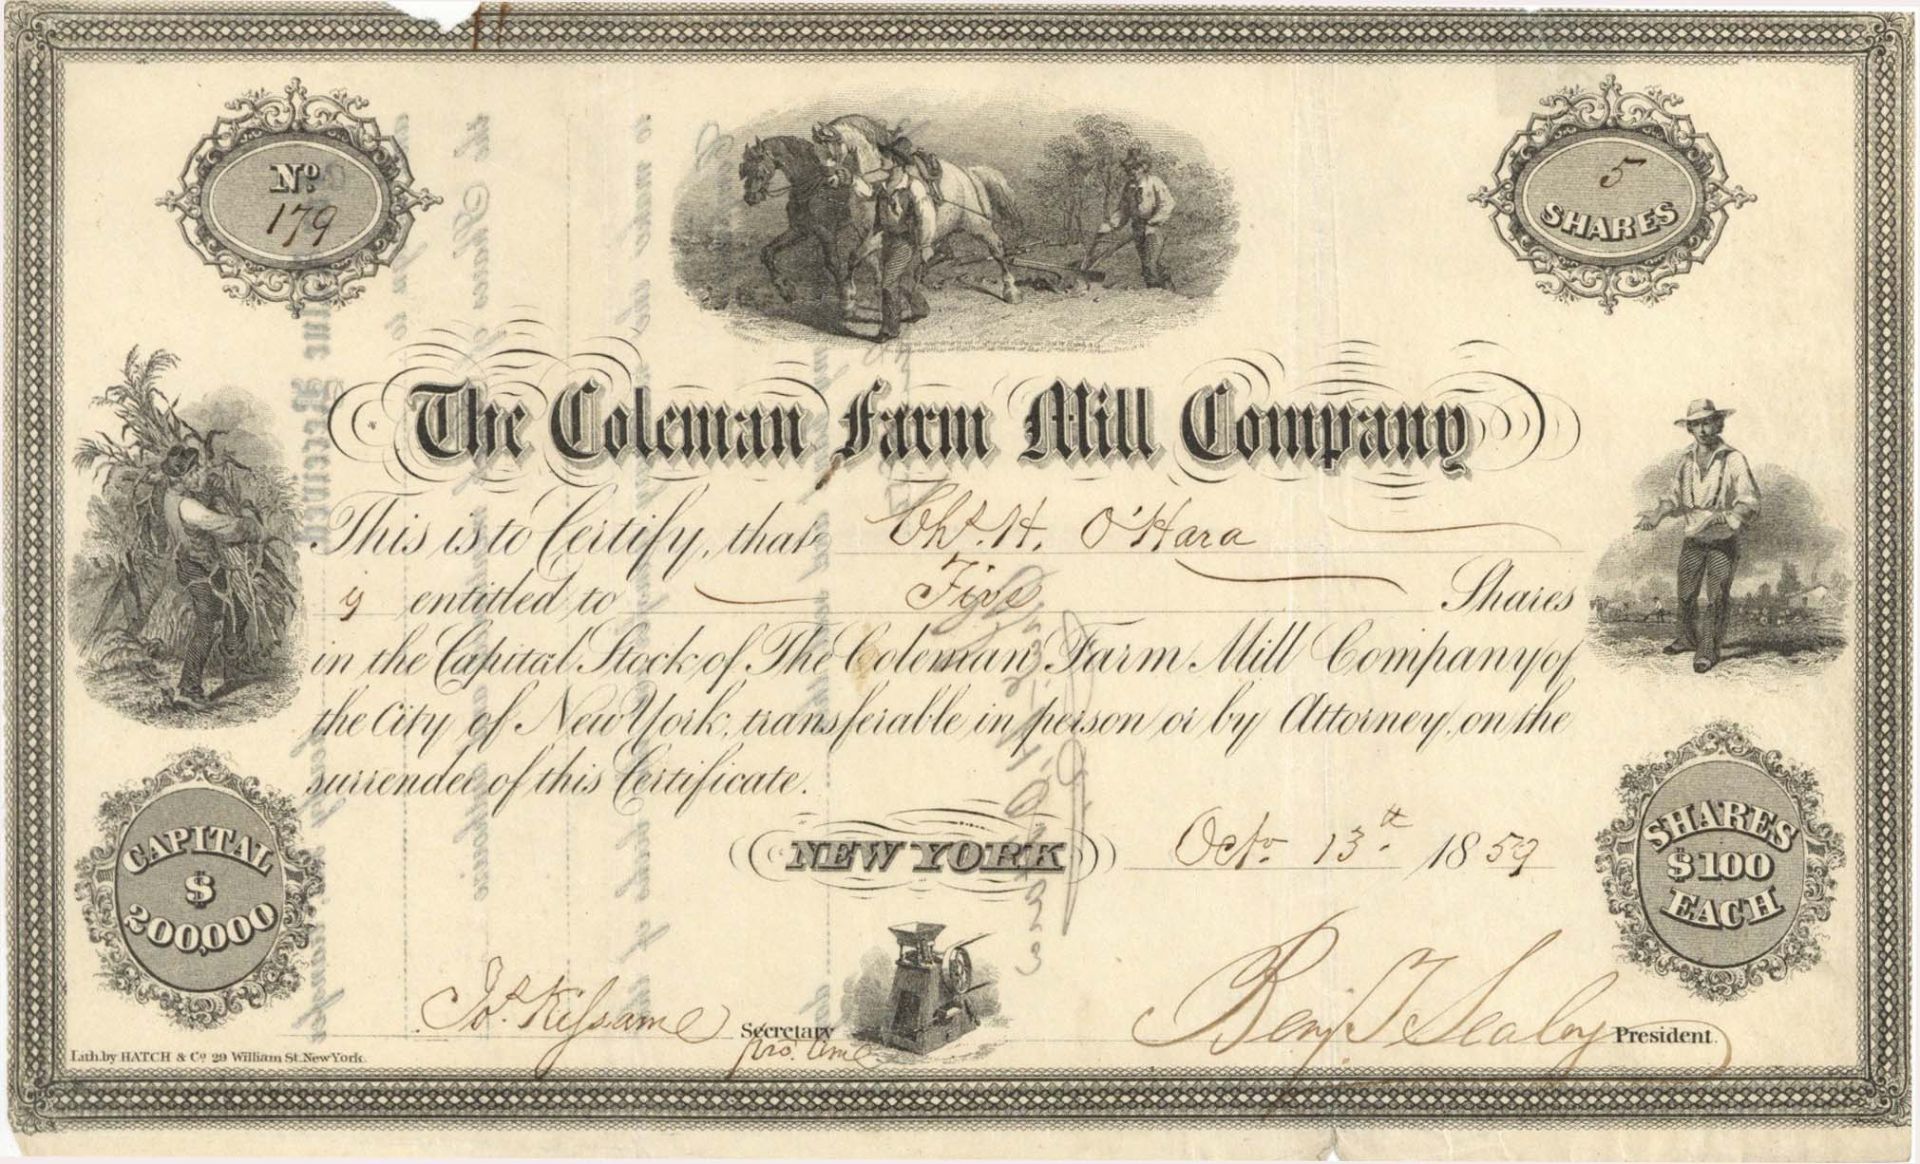 No. 179
5 SHARES
The Coleman Farm Mill Company
This is to Certify, that Chs. H. O'Hara
is entitled to Five Shares
in the Capital Stock of The Coleman Farm Mill Company of
the City of New York, transferable in person or by Attorney, on the
surrender of this Certificate.
CAPITAL
$
200,000
NEW YORK Octo. 13th. 1859
SHARES
$100
EACH
Jos. Kissame Secretary
pro. tem
Benj. F. Sealey President.
Lith. by HATCH & Co. 29 William St. New York.